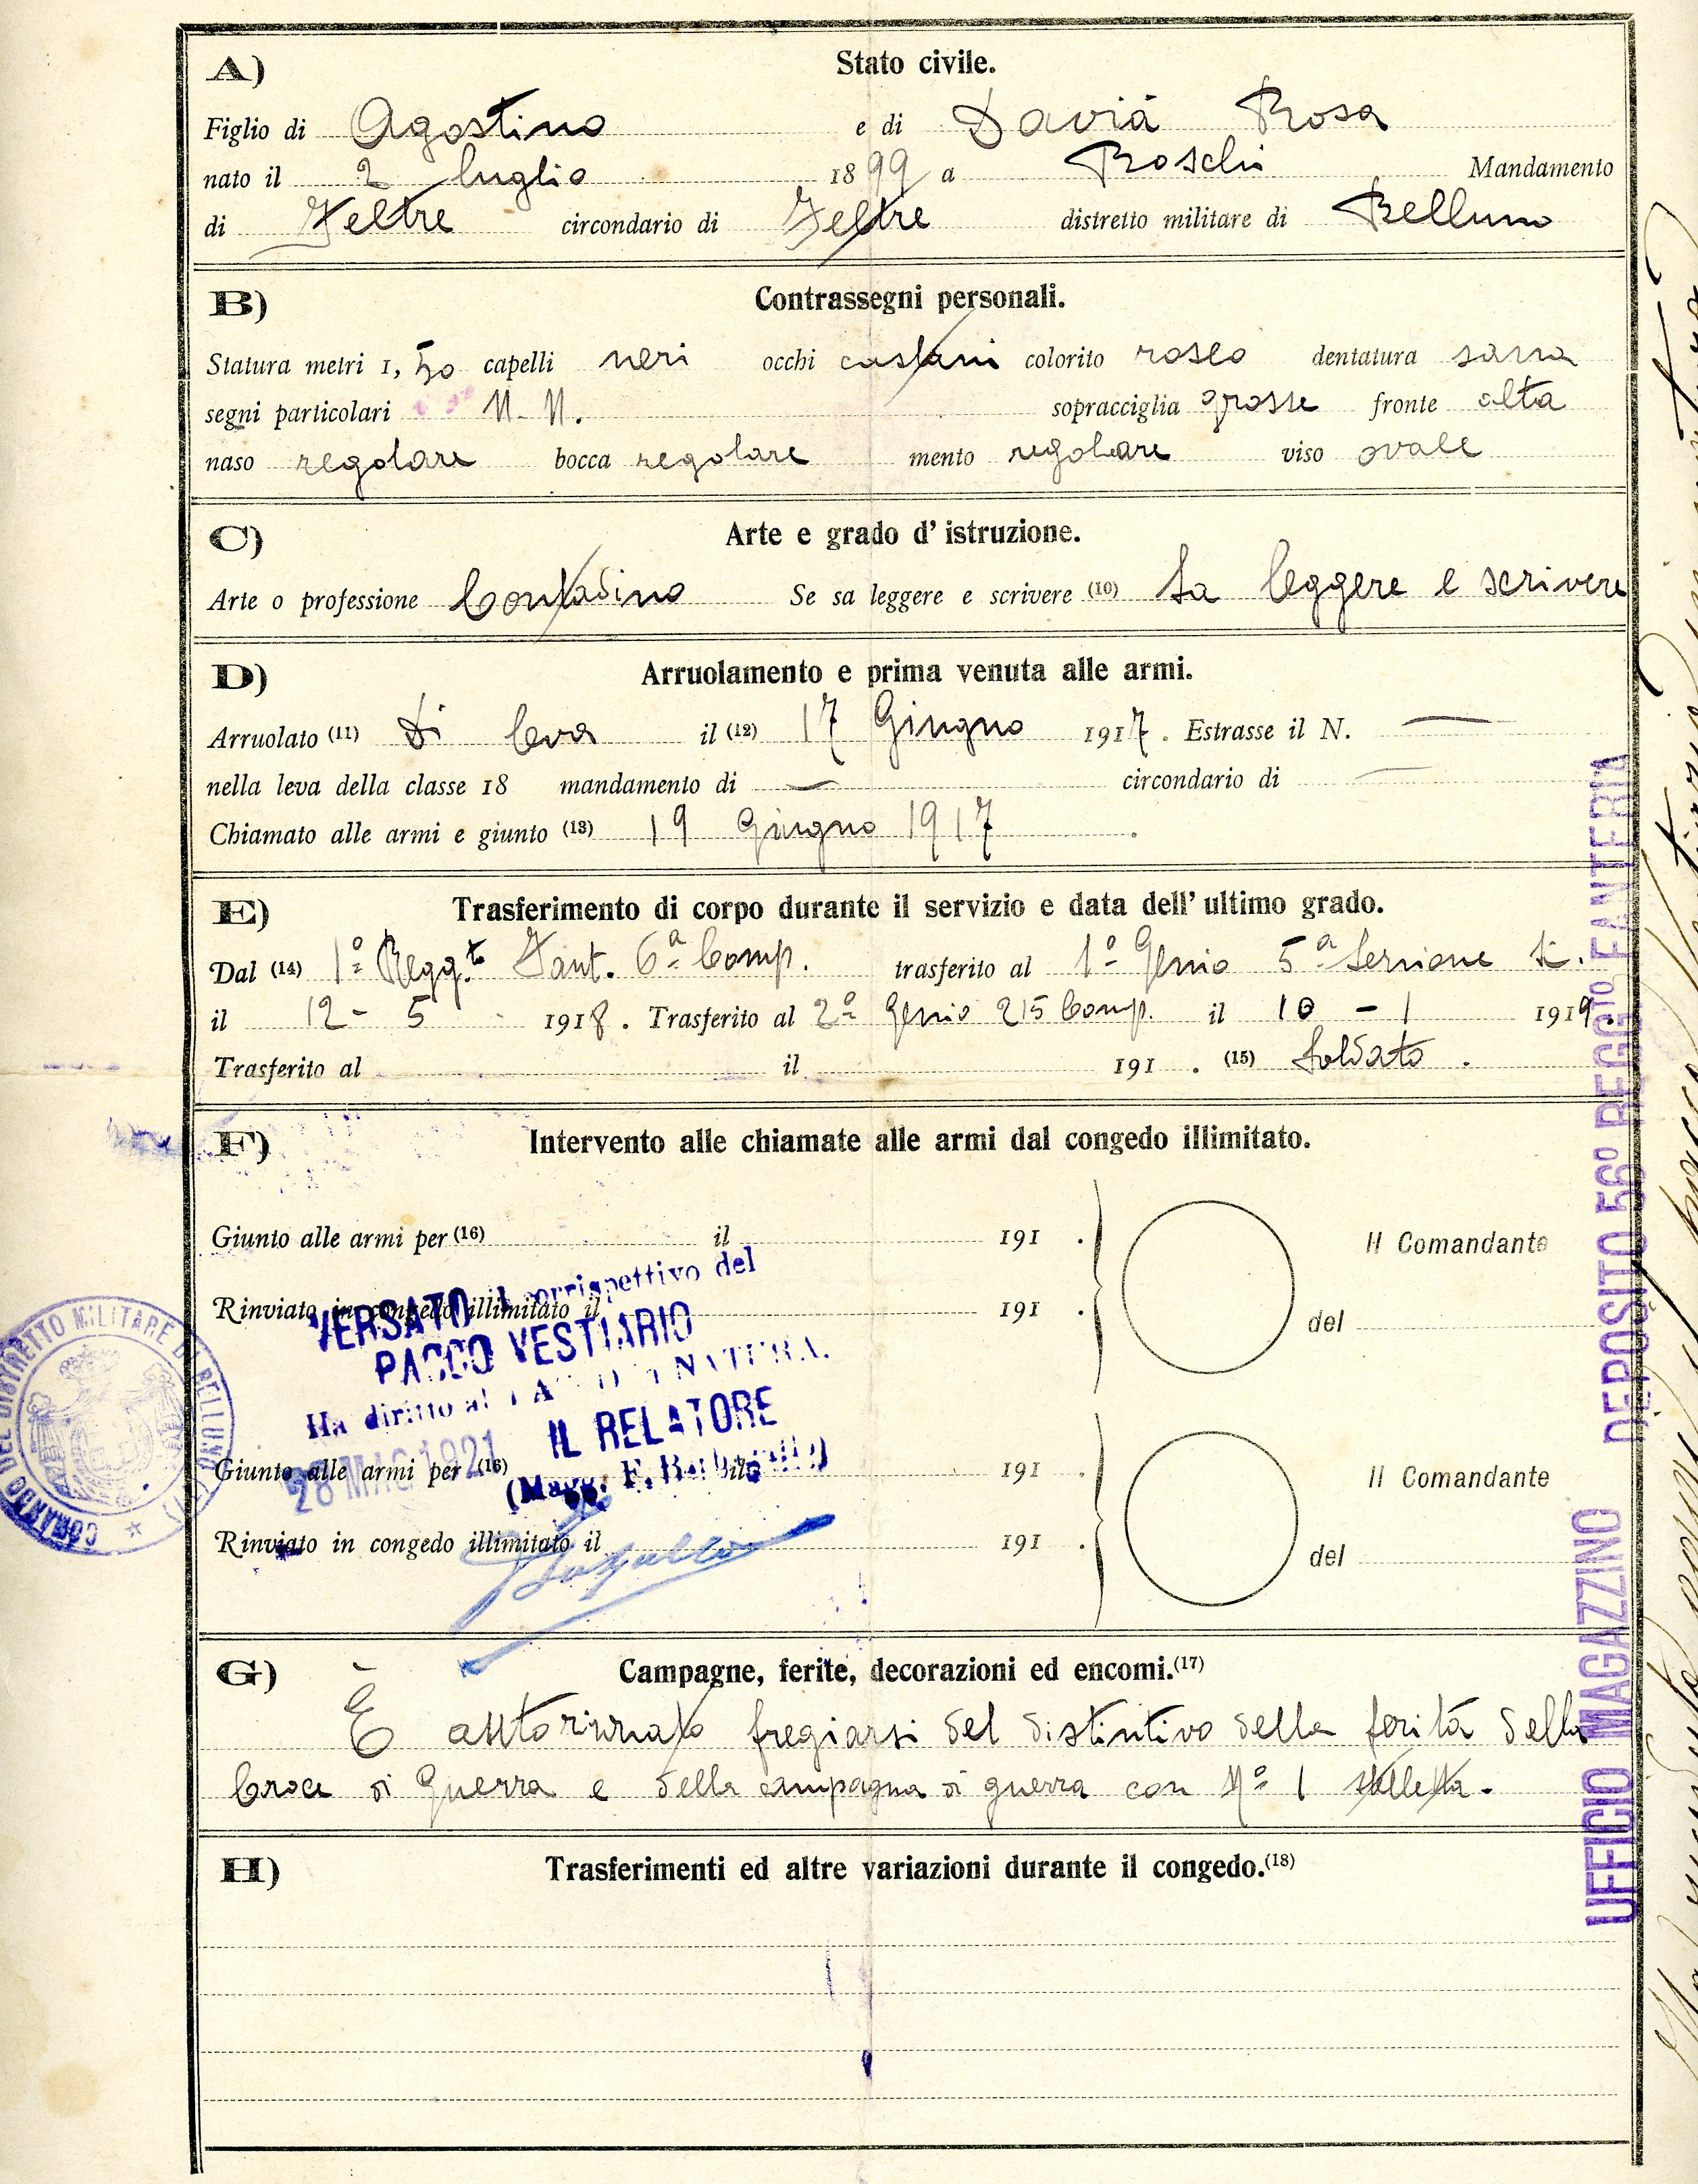 A) Stato civile.
Figlio di Agostino e di Davià Rosa
nato il 2 luglio 1899 a Roschi Mandamento
di Feltre circondario di Feltre distretto militare di Belluno
B) Contrassegni personali.
Statura metri 1, 50 capelli neri occhi castani colorito roseo dentatura sana
segni particolari N. N. sopracciglia grosse fronte alta
naso regolare bocca regolare mento regolare viso ovale
C) Arte e grado d' istruzione.
Arte o professione Contadino Se sa leggere e scrivere (10) Sa leggere e scrivere
D) Arruolamento e prima venuta alle armi.
Arruolato (11) di leva il (12) 17 Giugno 1917. Estrasse il N. —
nella leva della classe 18 mandamento di — circondario di —
Chiamato alle armi e giunto (13) 19 Giugno 1917.
E) Trasferimento di corpo durante il servizio e data dell' ultimo grado.
Dal (14) 1º Regg.to Fant. 6ª Comp. trasferito al 1º Genio 5ª Sezione
il 12 - 5 1918. Trasferito al 2º Genio 215 Comp. il 10 - 1 1919.
Trasferito al il 191 . (15) Soldato .
F) Intervento alle chiamate alle armi dal congedo illimitato.
Giunto alle armi per (16) il 191 . Il Comandante
Rinviato in congedo illimitato il 191 . del
VERSATO il corrispettivo del
PACCO VESTIARIO
Ha diritto al PACCO NATURA.
IL RELATORE
28 MAG 1921
(Magg. F.
Giunto alle armi per (16) il 191 . Il Comandante
Rinviato in congedo illimitato il 191 . del
COMANDO DEL DISTRETTO MILITARE DI BELLUNO
G) Campagne, ferite, decorazioni ed encomi.(17)
È auttorizzato fregiarsi del distintivo della ferita della
Croce di Guerra e della campagna di guerra con Nº 1 stelletta.
H) Trasferimenti ed altre variazioni durante il congedo.(18)
UFFICIO MAGAZZINO DEPOSITO 56º REGG.to FANTERIA